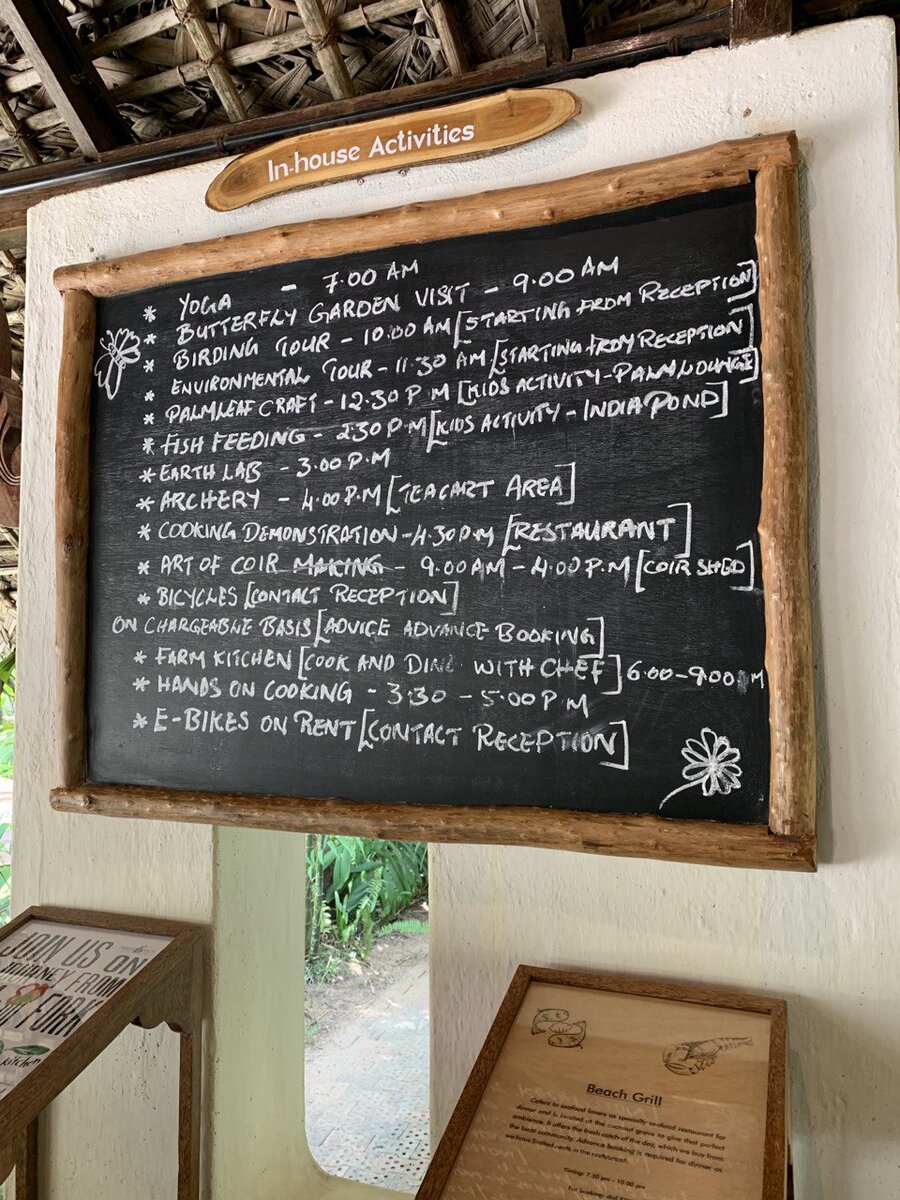 In-house Activities
* YOGA - 7.00 AM
* BUTTERFLY GARDEN VISIT - 9.00 AM
* BIRDING TOUR - 10.00 AM [STARTING FROM RECEPTION]
* ENVIRONMENTAL TOUR - 11.30 AM [STARTING FROM RECEPTION]
* PALMLEAF CRAFT - 12.30 P M [KIDS ACTIVITY - PALM LOUNGE]
* FISH FEEDING - 2.30 P.M [KIDS ACTIVITY - INDIA POND]
* EARTH LAB - 3.00 P.M
* ARCHERY - 4.00 P.M [TEACART AREA]
* COOKING DEMONSTRATION - 4.30 P.M [RESTAURANT]
* ART OF COIR MAKING - 9.00 AM - 4.00 P.M [COIR SHED]
* BICYCLES [CONTACT RECEPTION]
ON CHARGEABLE BASIS [ADVICE ADVANCE BOOKING]
* FARM KITCHEN [COOK AND DINE WITH CHEF] 6.00 - 9.00 M
* HANDS ON COOKING - 3.30 - 5.00 P.M
* E-BIKES ON RENT [CONTACT RECEPTION]
JOIN US ON
JOURNEY FROM
FORK
kitchen
Beach Grill
Caters to seafood lovers as specialty seafood restaurant for
dinner and is located at the coconut grove to give that perfect
ambience. It offers the fresh catch of the day, which we buy from
the local community. Advance booking is required for dinner as
we have limited seats in the restaurant.
Timing: 7.30 pm - 10.00 pm
For booking: dial